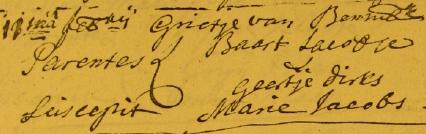 Grietje van
Parentes Baart Jacobse
Geertje dirks
Suscepit Marie Jacobs